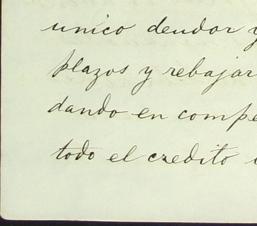 unico deudor y
plazos y rebajar
dando en compe
todo el credito